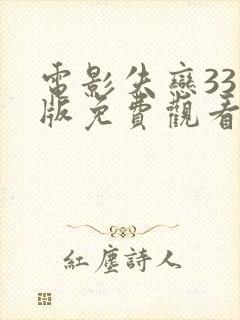 電影失戀33
版免費觀看
紅塵詩人